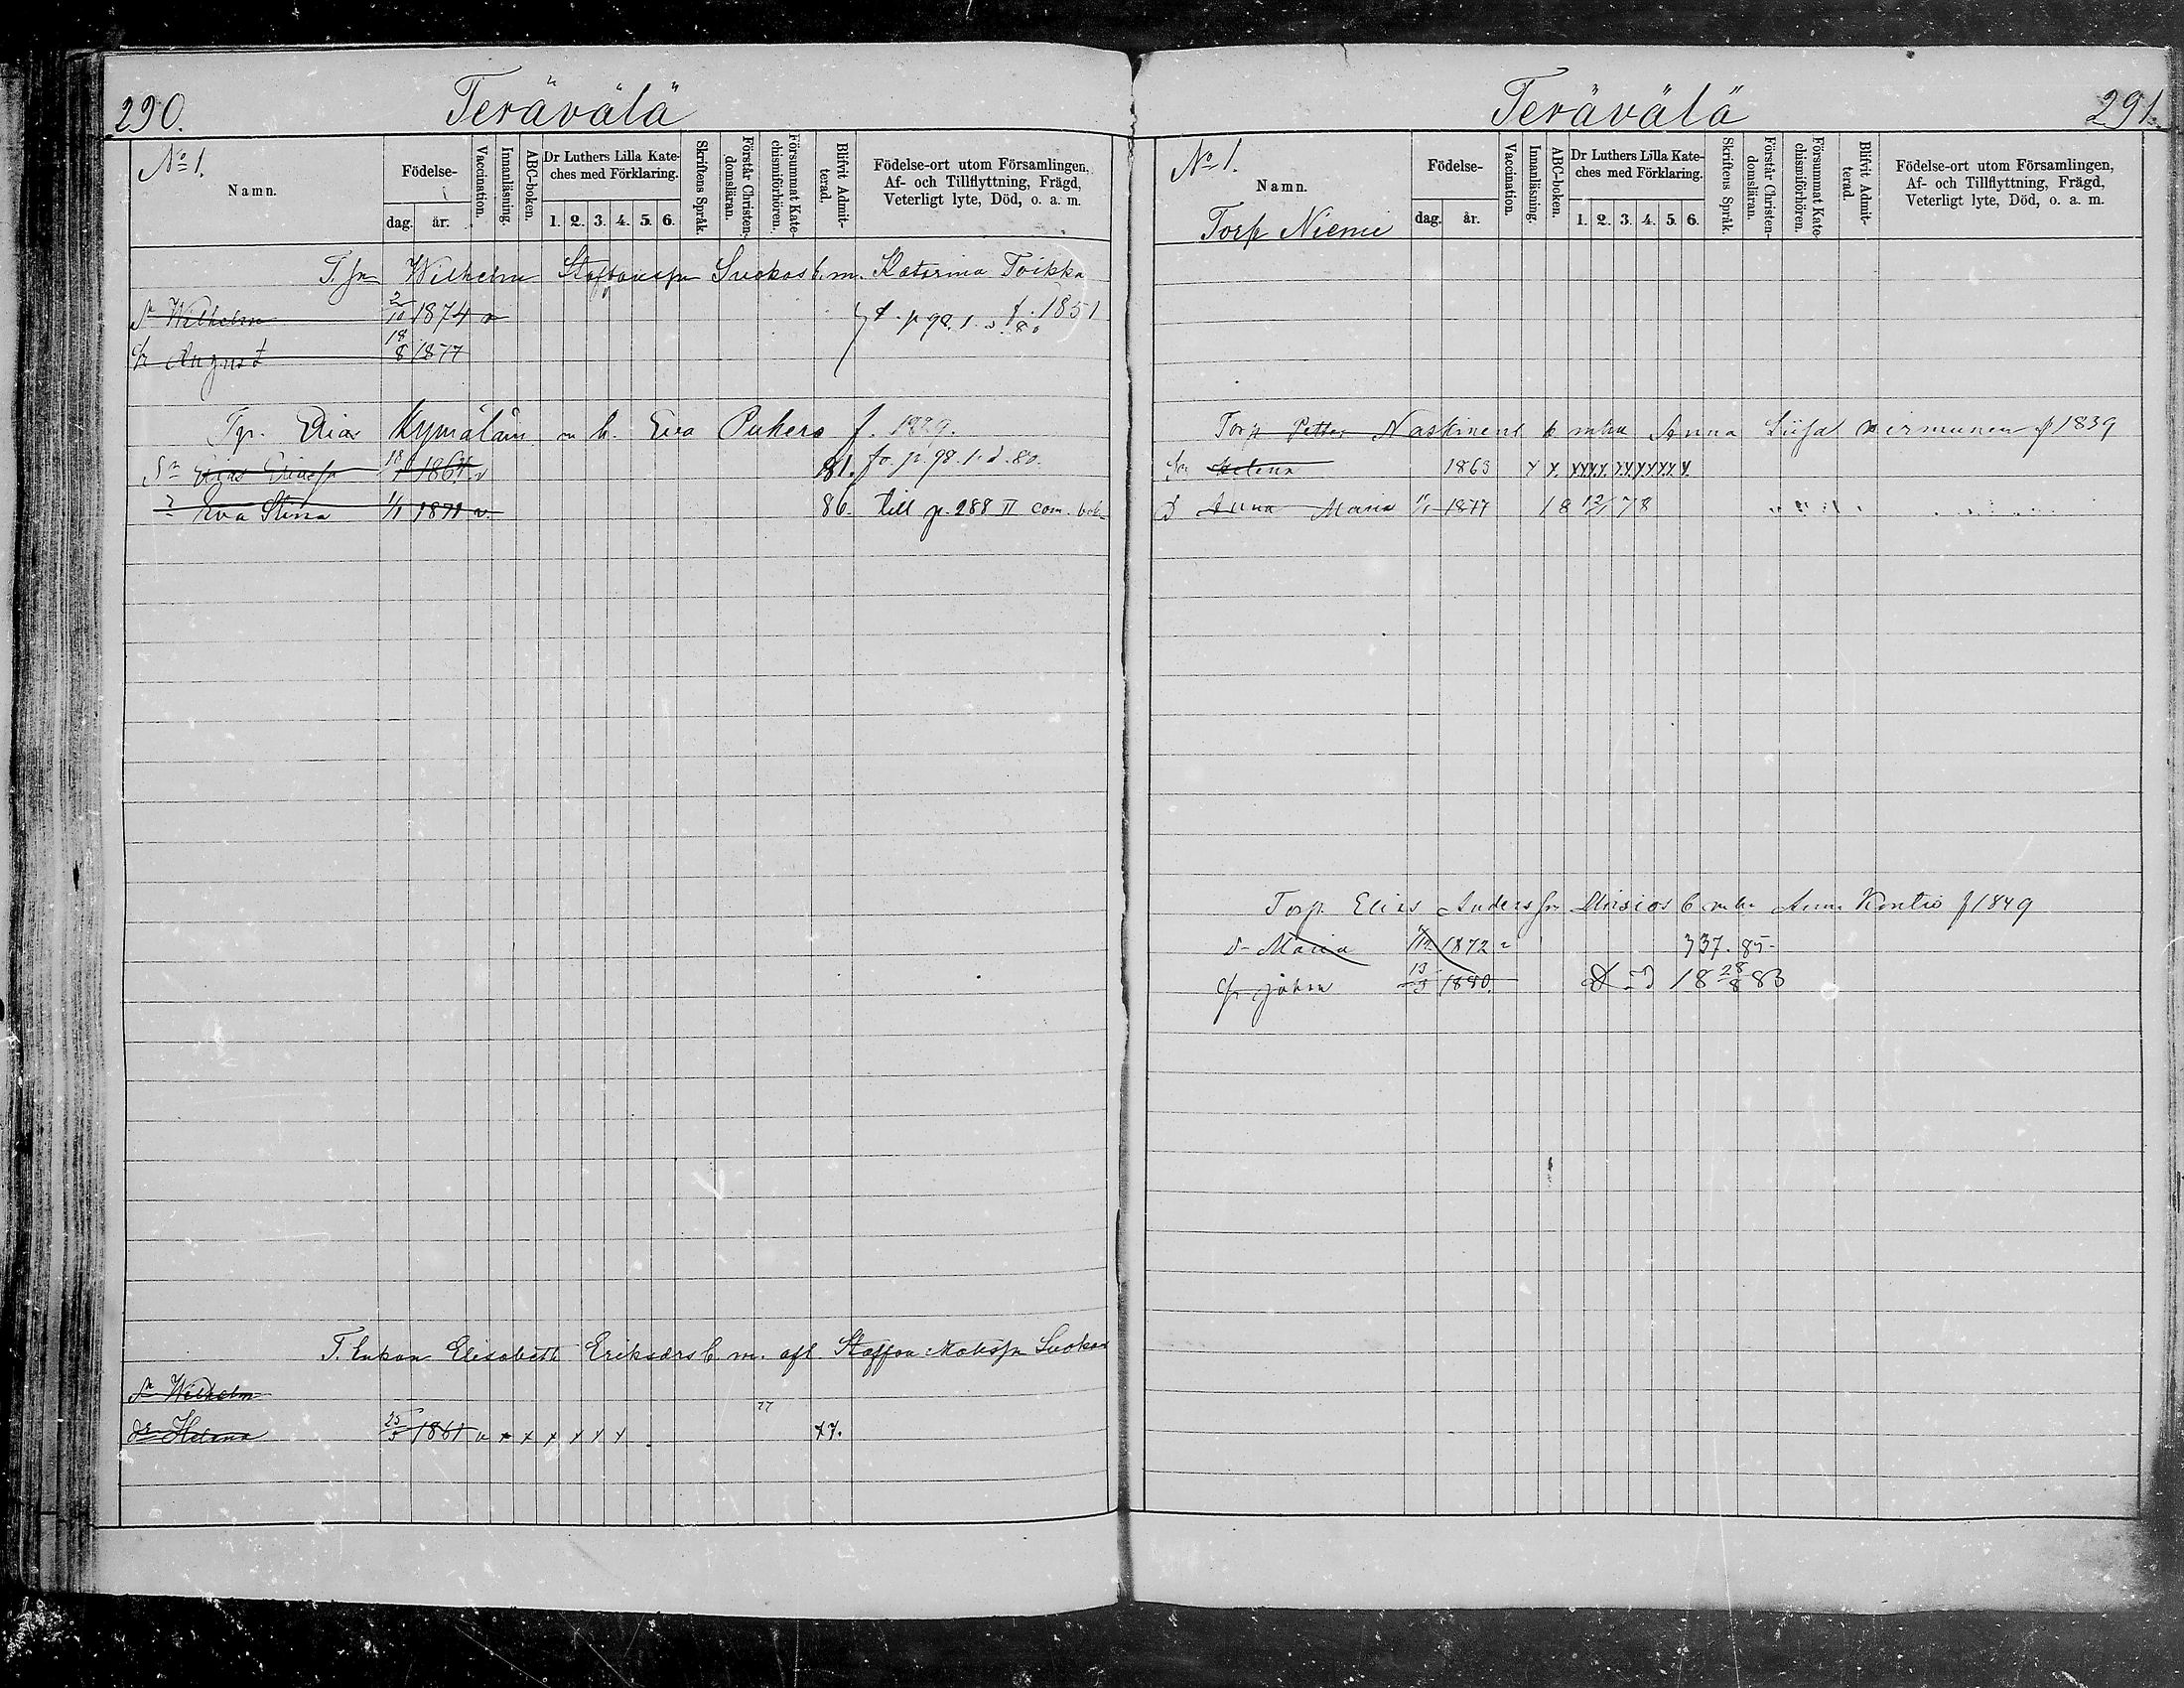 290. Terävälä
No 1.
Namn.
Födelse-
dag. år.
Vaccination.
Innanläsning.
ABC-boken.
Dr Luthers Lilla Kate-
ches med Förklaring.
1. 2. 3. 4. 5. 6.
Skriftens Språk.
Förstår Christen-
domsläran.
Försummat Kate-
chismiförhören.
Blifvit Admit-
terad.
Födelse-ort utom Församlingen,
Af- och Tillflyttning, Frägd,
Veterligt lyte, Död, o. a. m.
Wilhelm Staffansson Suokas b. m. Katarina Toikka
Wilhelm 2/10 1874 f. 1851
August 18/8 1877
Elias Kymäläin m h. Eva Pukero f. 1829.
Sn Elias Eliass 81. fo. p. 98. 1. d. 80.
Eva Stina 1/1 1871 v. 86. till p. 288 II com. bok
T. Enkan Elisabeth Eriksdrs b m. afl Staffan Matssn Suokas
Sn Wilhelm
77
dr Helena 25/5 1861 v x x x x x x 77.
Terävälä 291.
No 1.
Namn.
Torp Niemi
Födelse-
dag. år.
Vaccination.
Innanläsning.
ABC-boken.
Dr Luthers Lilla Kate-
ches med Förklaring.
1. 2. 3. 4. 5. 6.
Skriftens Språk.
Förstår Christen-
domsläran.
Försummat Kate-
chismiförhören.
Blifvit Admit-
terad.
Födelse-ort utom Församlingen,
Af- och Tillflyttning, Frägd,
Veterligt lyte, Död, o. a. m.
Torp Petter Naskinens b mha Anna Liisa f 1839
Helena 1863 x x. xxxx. xxxxxxx x.
D Anna Maria 1877 18 12/1 78
Torp. Elias Anderssn b mha Anna Kontio f 1849
Maria 1872 337. 85-
Johan 13/3 1880. 18 28/8 83